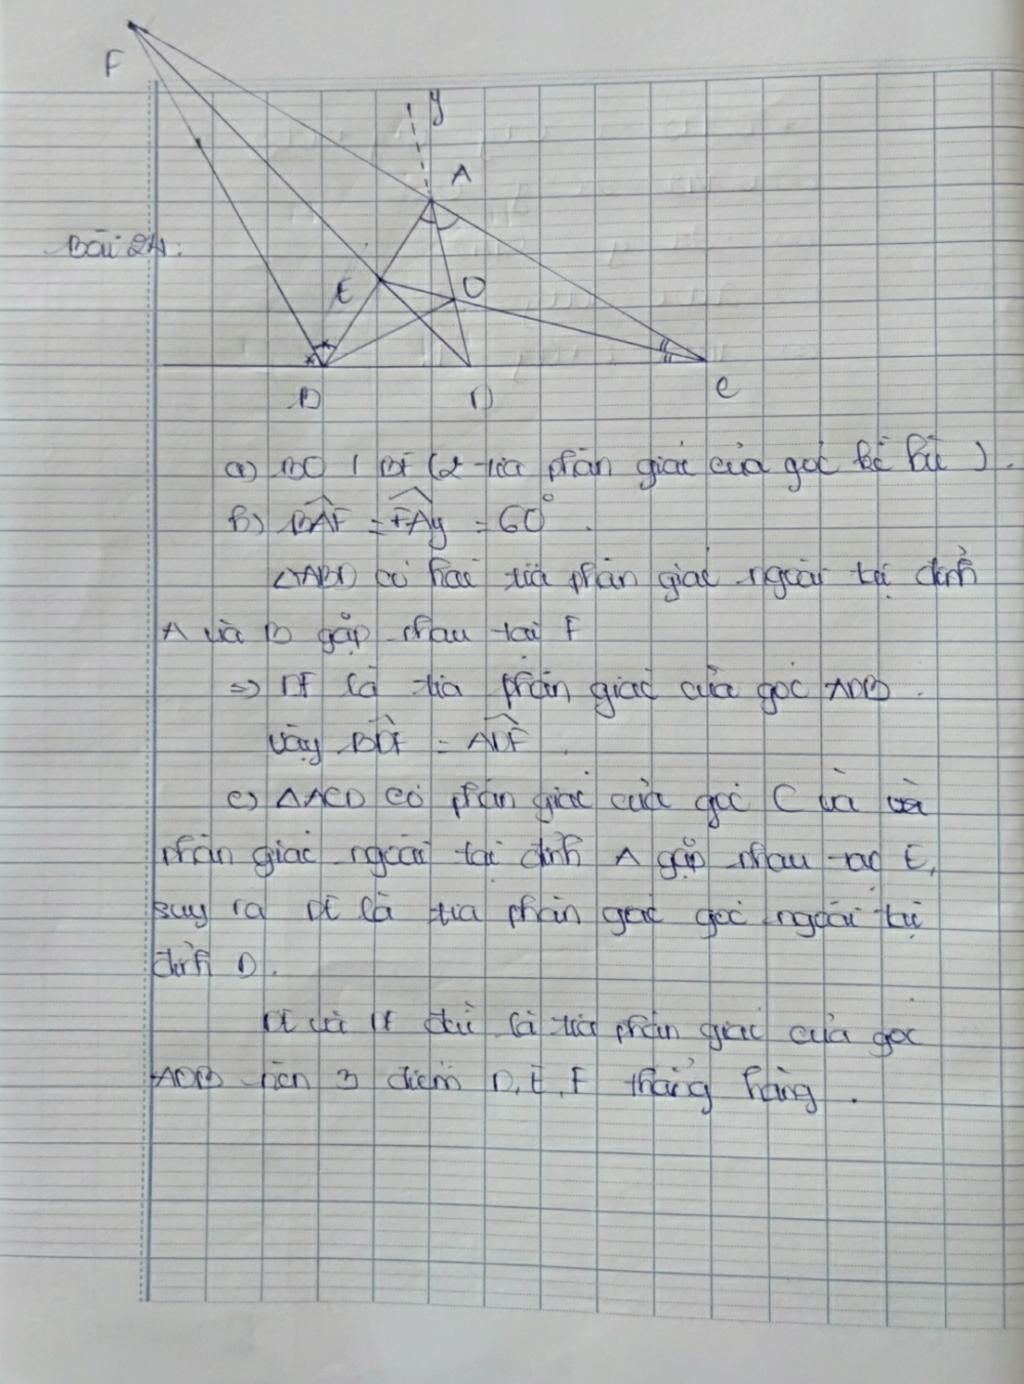 F
y
A
Bài 24.
E
O
B
D
C
a) BO ⊥ BF (2 tia phân giác của góc kề bù).
b) BAF = FAy = 60°.
ΔABD có hai tia phân giác ngoài tại đỉnh
A và B gặp nhau tại F
=> DF là tia phân giác của góc ADB.
Vậy BDF = ADF.
c) ΔACD có phân giác của góc C và và
phân giác ngoài tại đỉnh A gặp nhau tại E,
suy ra DE là tia phân giác góc ngoài tại
đỉnh D.
DE và DF đều là tia phân giác của góc
ADB nên 3 điểm D, E, F thẳng hàng.